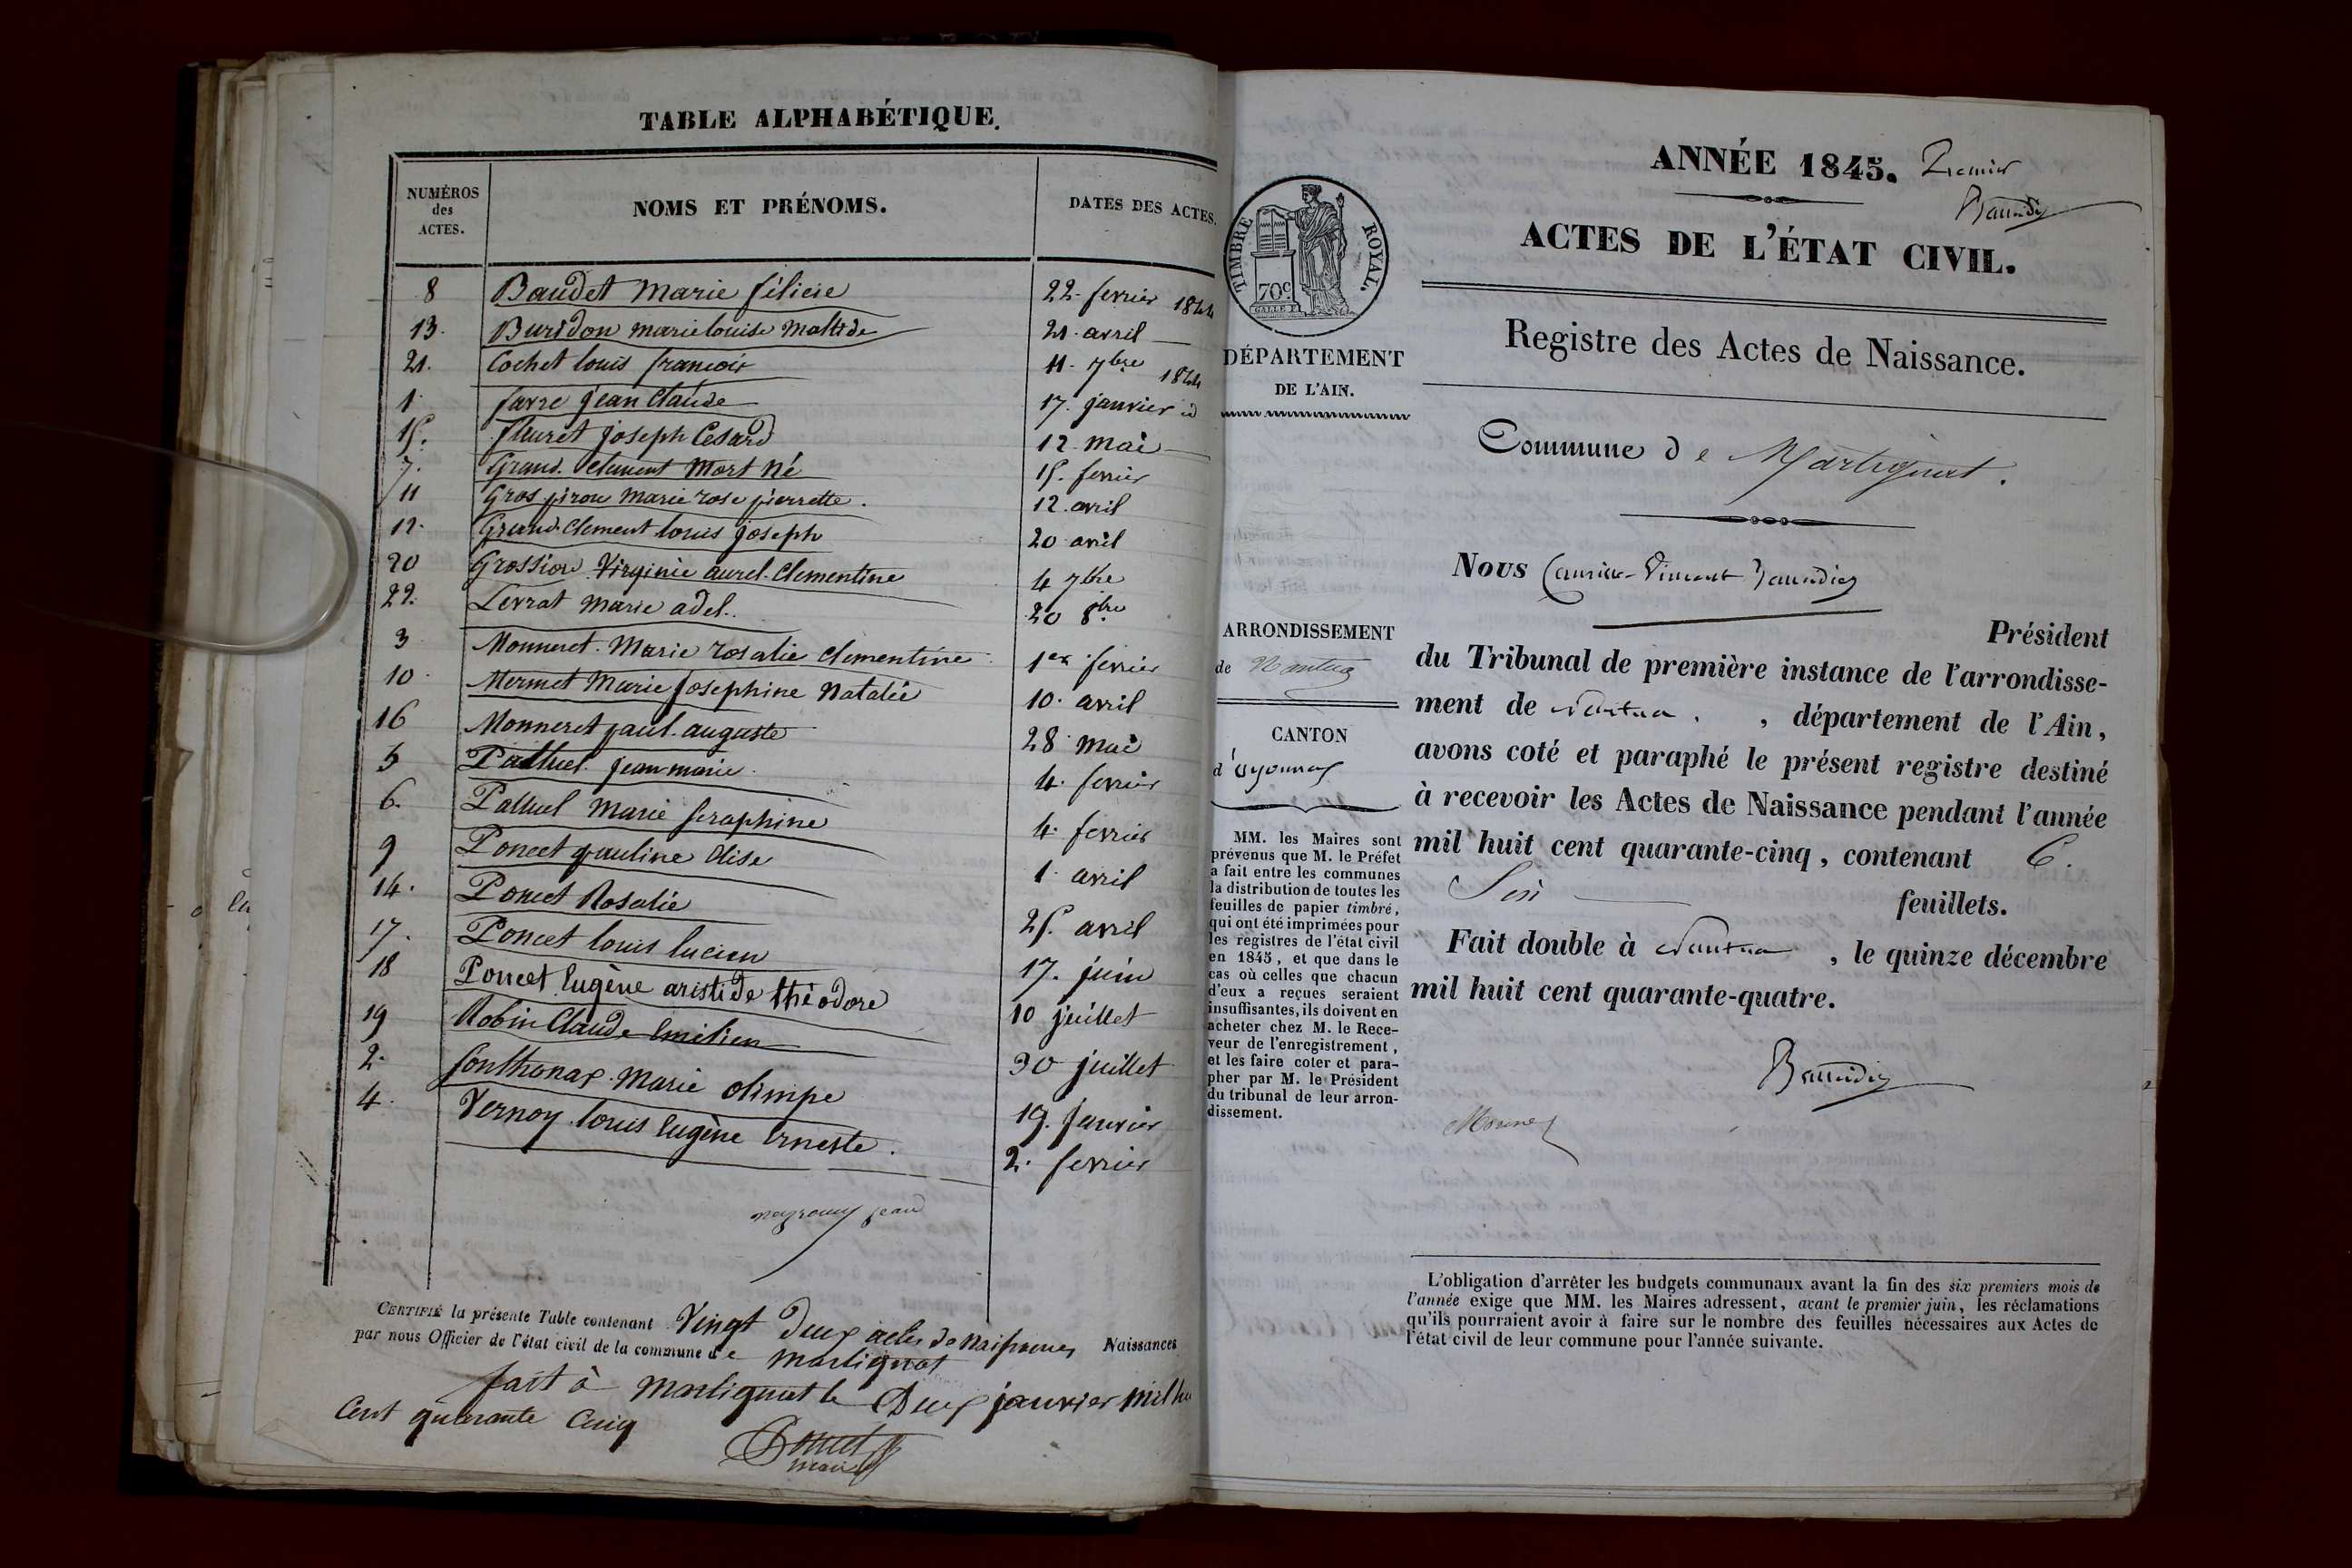 TABLE ALPHABÉTIQUE.
NUMÉROS des ACTES. NOMS ET PRÉNOMS. DATES DES ACTES.
8 Baudet Marie félicie 22. fevrier 1844
13. Buridon marie louise Matilde 21. avril —
21. Cochet louis francois 11. 7bre 1844
1. favre jean Claude 17. janvier id
15. fleuret joseph Cesard 12. mai —
7. Grand. Clement Mort Né 15. fevrier
11 Gros pirou marie rose pierrette. 12. avril
12. Grand Clement louis joseph 20 avril
20 Grossiord Virginie aurel. Clementine 4 7bre
22. Levrat marie adel. 20 8bre
3 Monneret. Marie rosalie clementine 1er fevrier
10 Mermet Marie Josephine Natalie 10. avril
16 Monneret paul. auguste 28 mai
5 Palluel jean marie 4. fevrier
6. Palluel Marie seraphine 4. fevrier
9 Poncet pauline Elise 1. avril
14. Poncet Rosalie 25. avril
17. Poncet louis lucien 17. juin
18 Poncet Eugène aristide théodore 10 juillet
19 Robin Claude Emilien 30 juillet
2. Sonthonax. Marie olimpe 19. Janvier
4. Vernoy louis Eugène Erneste. 2. fevrier
jean
CERTIFIÉ la présente Table contenant Vingt Deux actes de Naissances Naissances
par nous Officier de l'état civil de la commune de Martignat
fait à Martignat le Deux janvier mil
Cent quarante Cinq
Poncet
maire
ANNÉE 1845. Premier
ACTES DE L'ÉTAT CIVIL.
TIMBRE ROYAL.
70c
Registre des Actes de Naissance.
DÉPARTEMENT
DE L'AIN.
Commune de Martignat.
Nous
Président
ARRONDISSEMENT
de Nantua
CANTON
d'oyonnax
MM. les Maires sont
prévenus que M. le Préfet
a fait entre les communes
la distribution de toutes les
feuilles de papier timbré,
qui ont été imprimées pour
les registres de l'état civil
en 1845, et que dans le
cas où celles que chacun
d'eux a reçues seraient
insuffisantes, ils doivent en
acheter chez M. le Rece-
veur de l'enregistrement,
et les faire coter et para-
pher par M. le Président
du tribunal de leur arron-
dissement.
du Tribunal de première instance de l'arrondisse-
ment de Nantua. , département de l'Ain,
avons coté et paraphé le présent registre destiné
à recevoir les Actes de Naissance pendant l'année
mil huit cent quarante-cinq, contenant 6.
Six feuillets.
Fait double à Nantua , le quinze décembre
mil huit cent quarante-quatre.
L'obligation d'arrêter les budgets communaux avant la fin des six premiers mois de
l'année exige que MM. les Maires adressent, avant le premier juin, les réclamations
qu'ils pourraient avoir à faire sur le nombre des feuilles nécessaires aux Actes de
l'état civil de leur commune pour l'année suivante.